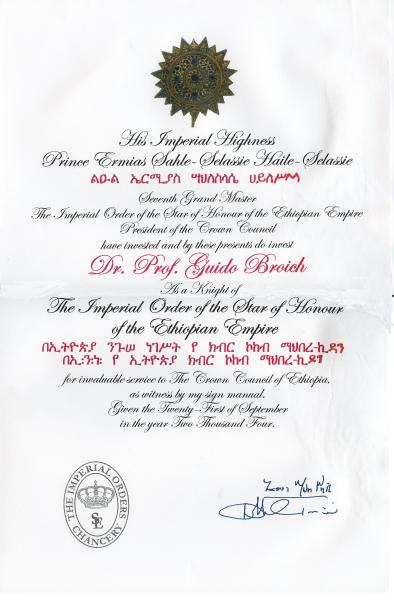 His Imperial Highness
Prince Ermias Sahle-Selassie Haile-Selassie
ልዑል ኤርሚያስ ሣህለስላሴ ሀይለሥላሤ
Seventh Grand Master
The Imperial Order of the Star of Honour of the Ethiopian Empire
President of the Crown Council
have invested and by these presents do invest
Dr. Prof. Guido Broich
As a Knight of
The Imperial Order of the Star of Honour
of the Ethiopian Empire
በኢትዮጵያ ንጉሠ ነገሥት የ ክብር ኮከብ ማህበረ-ኪዳን
በኢ.ን.ነ: የ ኢትዮጵያ ክብር ኮከብ ማህበረ-ኪዳን
for invaluable service to The Crown Council of Ethiopia,
as witness by my sign manual.
Given the Twenty-First of September
in the year Two Thousand Four.
THE IMPERIAL ORDERS
SE
CHANCERY